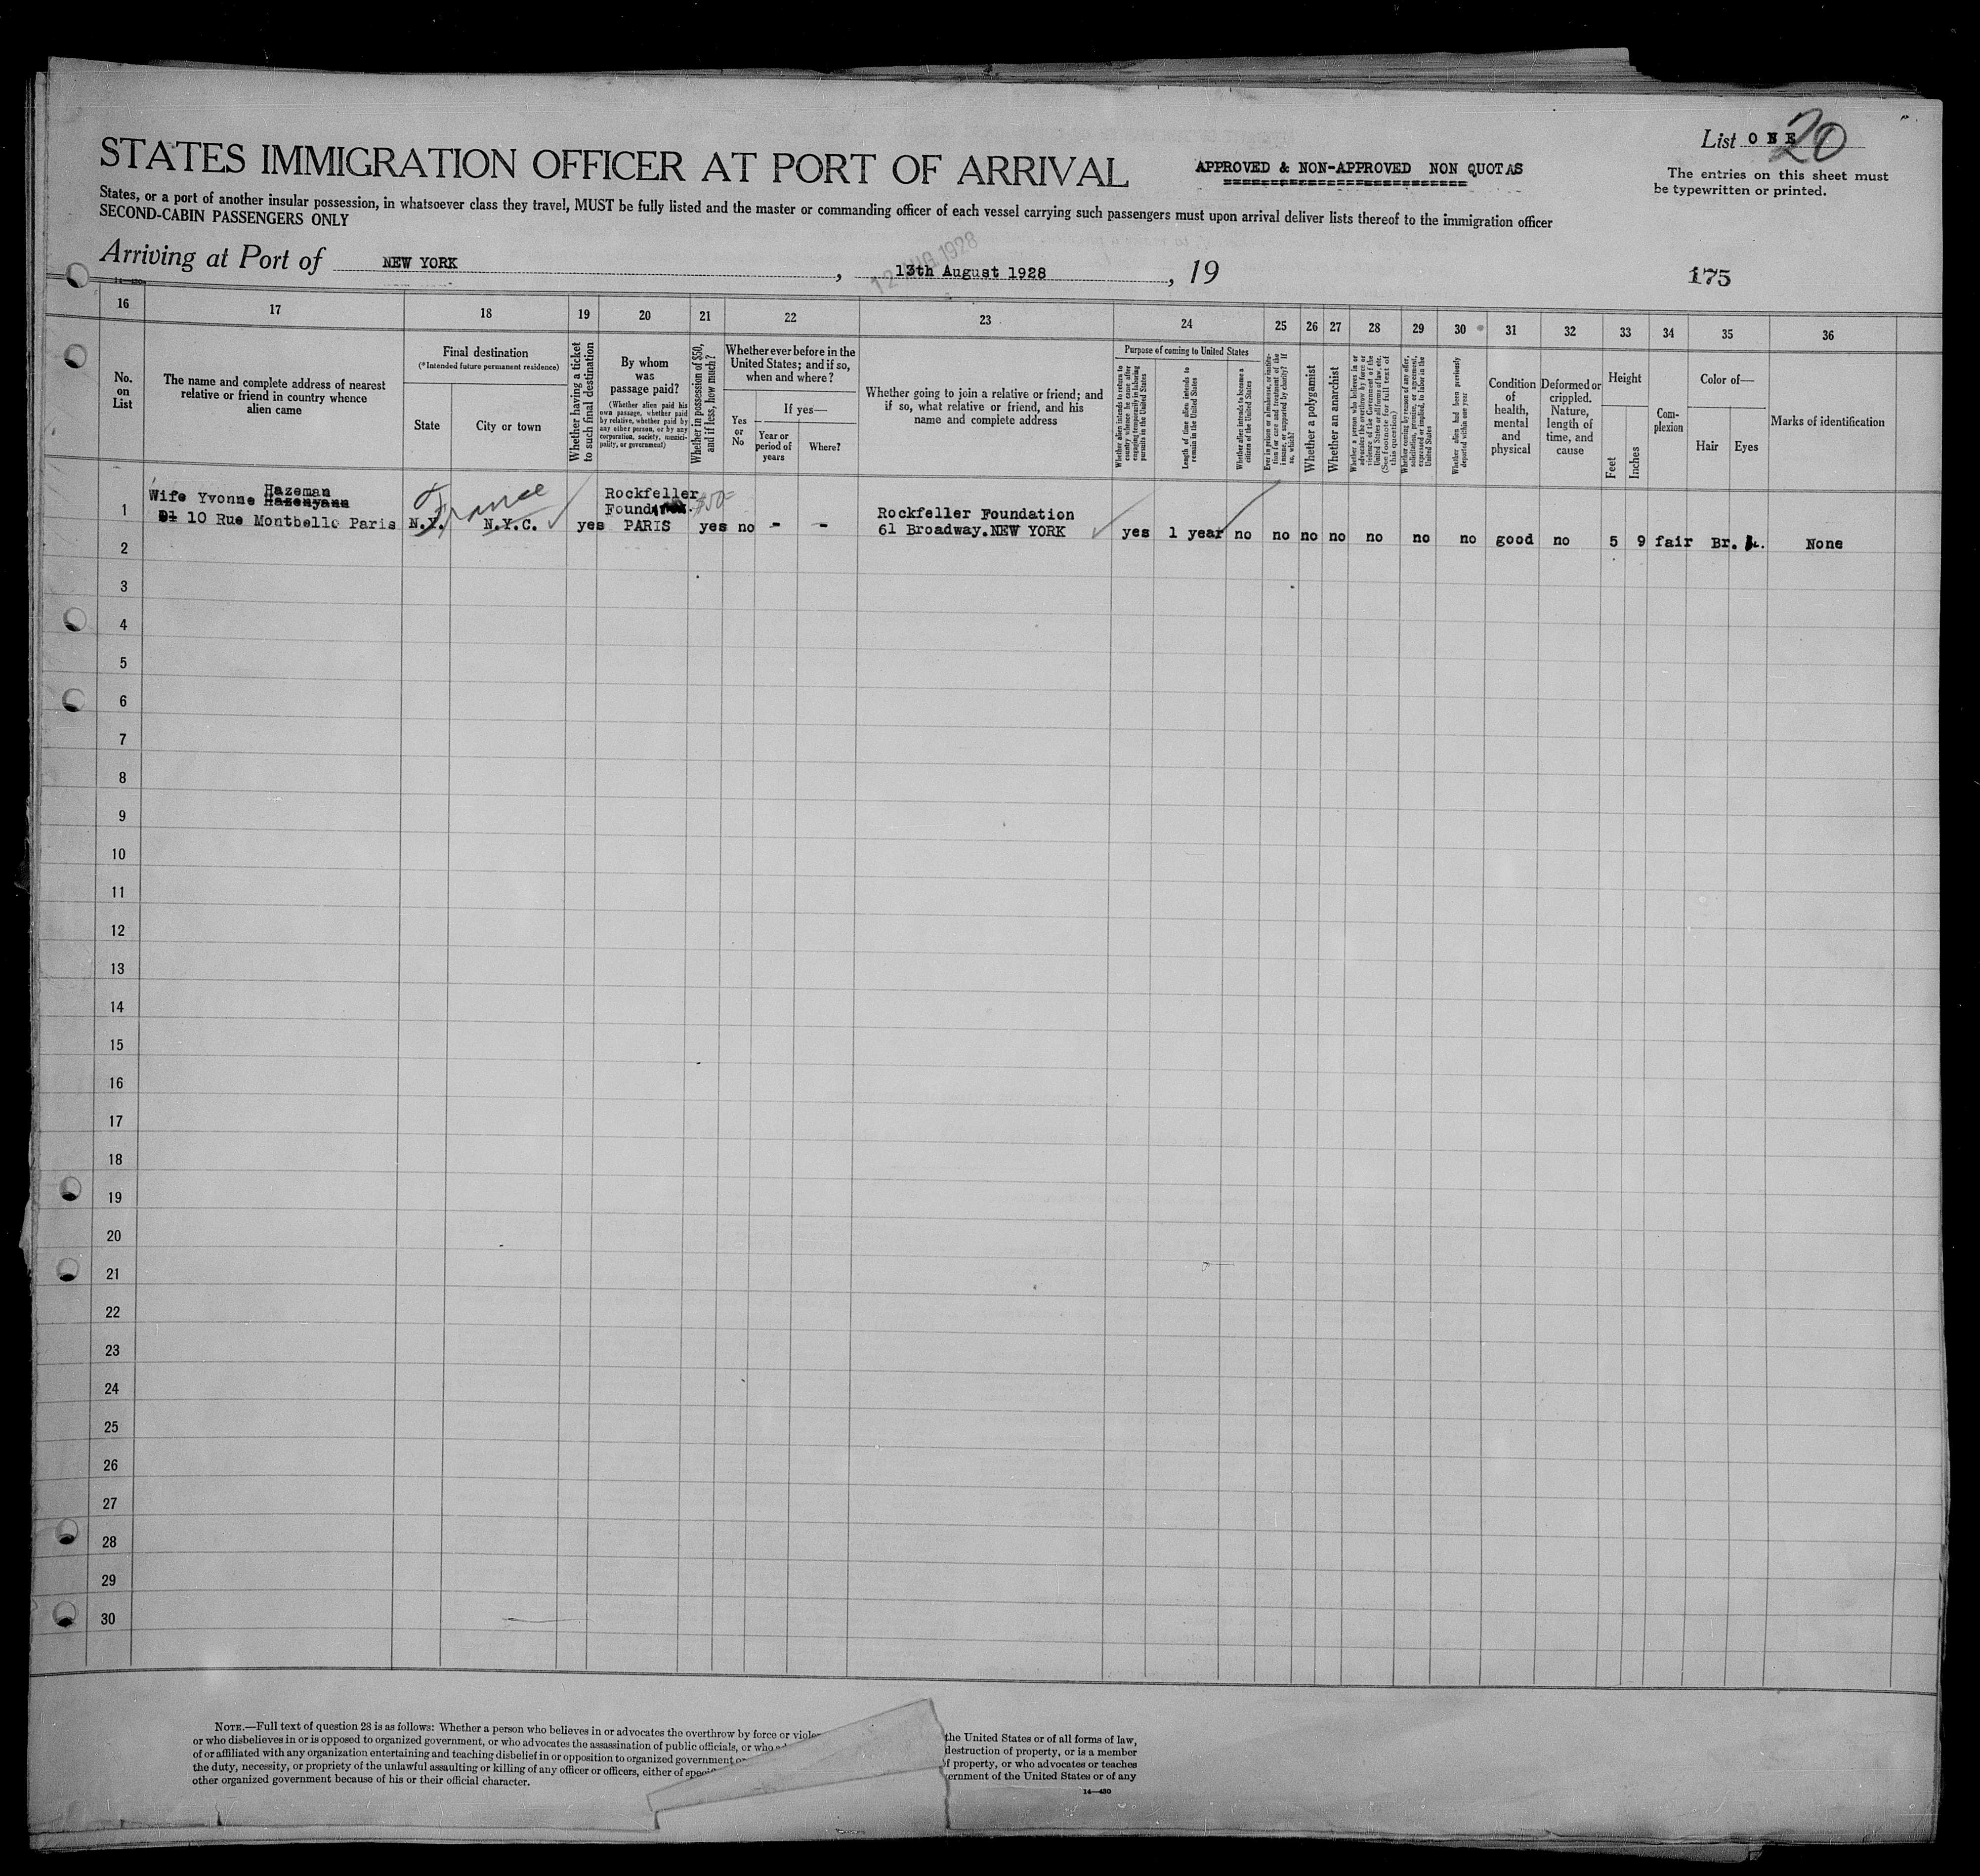 List ONE 20
STATES IMMIGRATION OFFICER AT PORT OF ARRIVAL
APPROVED & NON-APPROVED NON QUOTAS
The entries on this sheet must
be typewritten or printed.
States, or a port of another insular possession, in whatsoever class they travel, MUST be fully listed and the master or commanding officer of each vessel carrying such passengers must upon arrival deliver lists thereof to the immigration officer
SECOND-CABIN PASSENGERS ONLY
12 AUG 1928
Arriving at Port of NEW YORK, 13th August 1928, 19
175
14—430
16 17 18 19 20 21 22 23 24 25 26 27 28 29 30 31 32 33 34 35 36
No.
on
List
The name and complete address of nearest
relative or friend in country whence
alien came
Final destination
(*Intended future permanent residence)
State
City or town
Whether having a ticket
to such final destination
By whom
was
passage paid?
(Whether alien paid his
own passage, whether paid
by relative, whether paid by
any other person, or by any
corporation, society, munici-
pality, or government)
Whether in possession of $50,
and if less, how much?
Whether ever before in the
United States; and if so,
when and where?
Yes
or
No
If yes—
Year or
period of
years
Where?
Whether going to join a relative or friend; and
if so, what relative or friend, and his
name and complete address
Purpose of coming to United States
Whether alien intends to return to
country whence he came after
engaging temporarily in laboring
pursuits in the United States
Length of time alien intends to
remain in the United States
Whether alien intends to become a
citizen of the United States
Ever in prison or almshouse, or institu-
tion for care and treatment of the
insane, or supported by charity? If
so, which?
Whether a polygamist
Whether an anarchist
Whether a person who believes in or
advocates the overthrow by force or
violence of the Government of the
United States or all forms of law, etc.
(See footnote for full text of
this question)
Whether coming by reason of any offer,
solicitation, promise, or agreement,
expressed or implied, to labor in the
United States
Whether alien had been previously
deported within one year
Condition
of
health,
mental
and
physical
Deformed or
crippled.
Nature,
length of
time, and
cause
Height
Feet
Inches
Com-
plexion
Color of—
Hair
Eyes
Marks of identification
Hazeman
1 Wife Yvonne Hazenyann
10 Rue Montbello Paris
France
N.Y. N.Y.C. yes
Rockfeller
PARIS
$50=
yes no - -
Rockfeller Foundation
61 Broadway.NEW YORK
yes 1 year no no no no no no no good no 5 9 fair Br. None
2
3
4
5
6
7
8
9
10
11
12
13
14
15
16
17
18
19
20
21
22
23
24
25
26
27
28
29
30
NOTE.—Full text of question 28 is as follows: Whether a person who believes in or advocates the overthrow by force or the United States or of all forms of law,
or who disbelieves in or is opposed to organized government, or who advocates the assassination of public officials, or who destruction of property, or is a member
of or affiliated with any organization entertaining and teaching disbelief in or opposition to organized government of property, or who advocates or teaches
the duty, necessity, or propriety of the unlawful assaulting or killing of any officer or officers, either of ernment of the United States or of any
other organized government because of his or their official character.
14—430